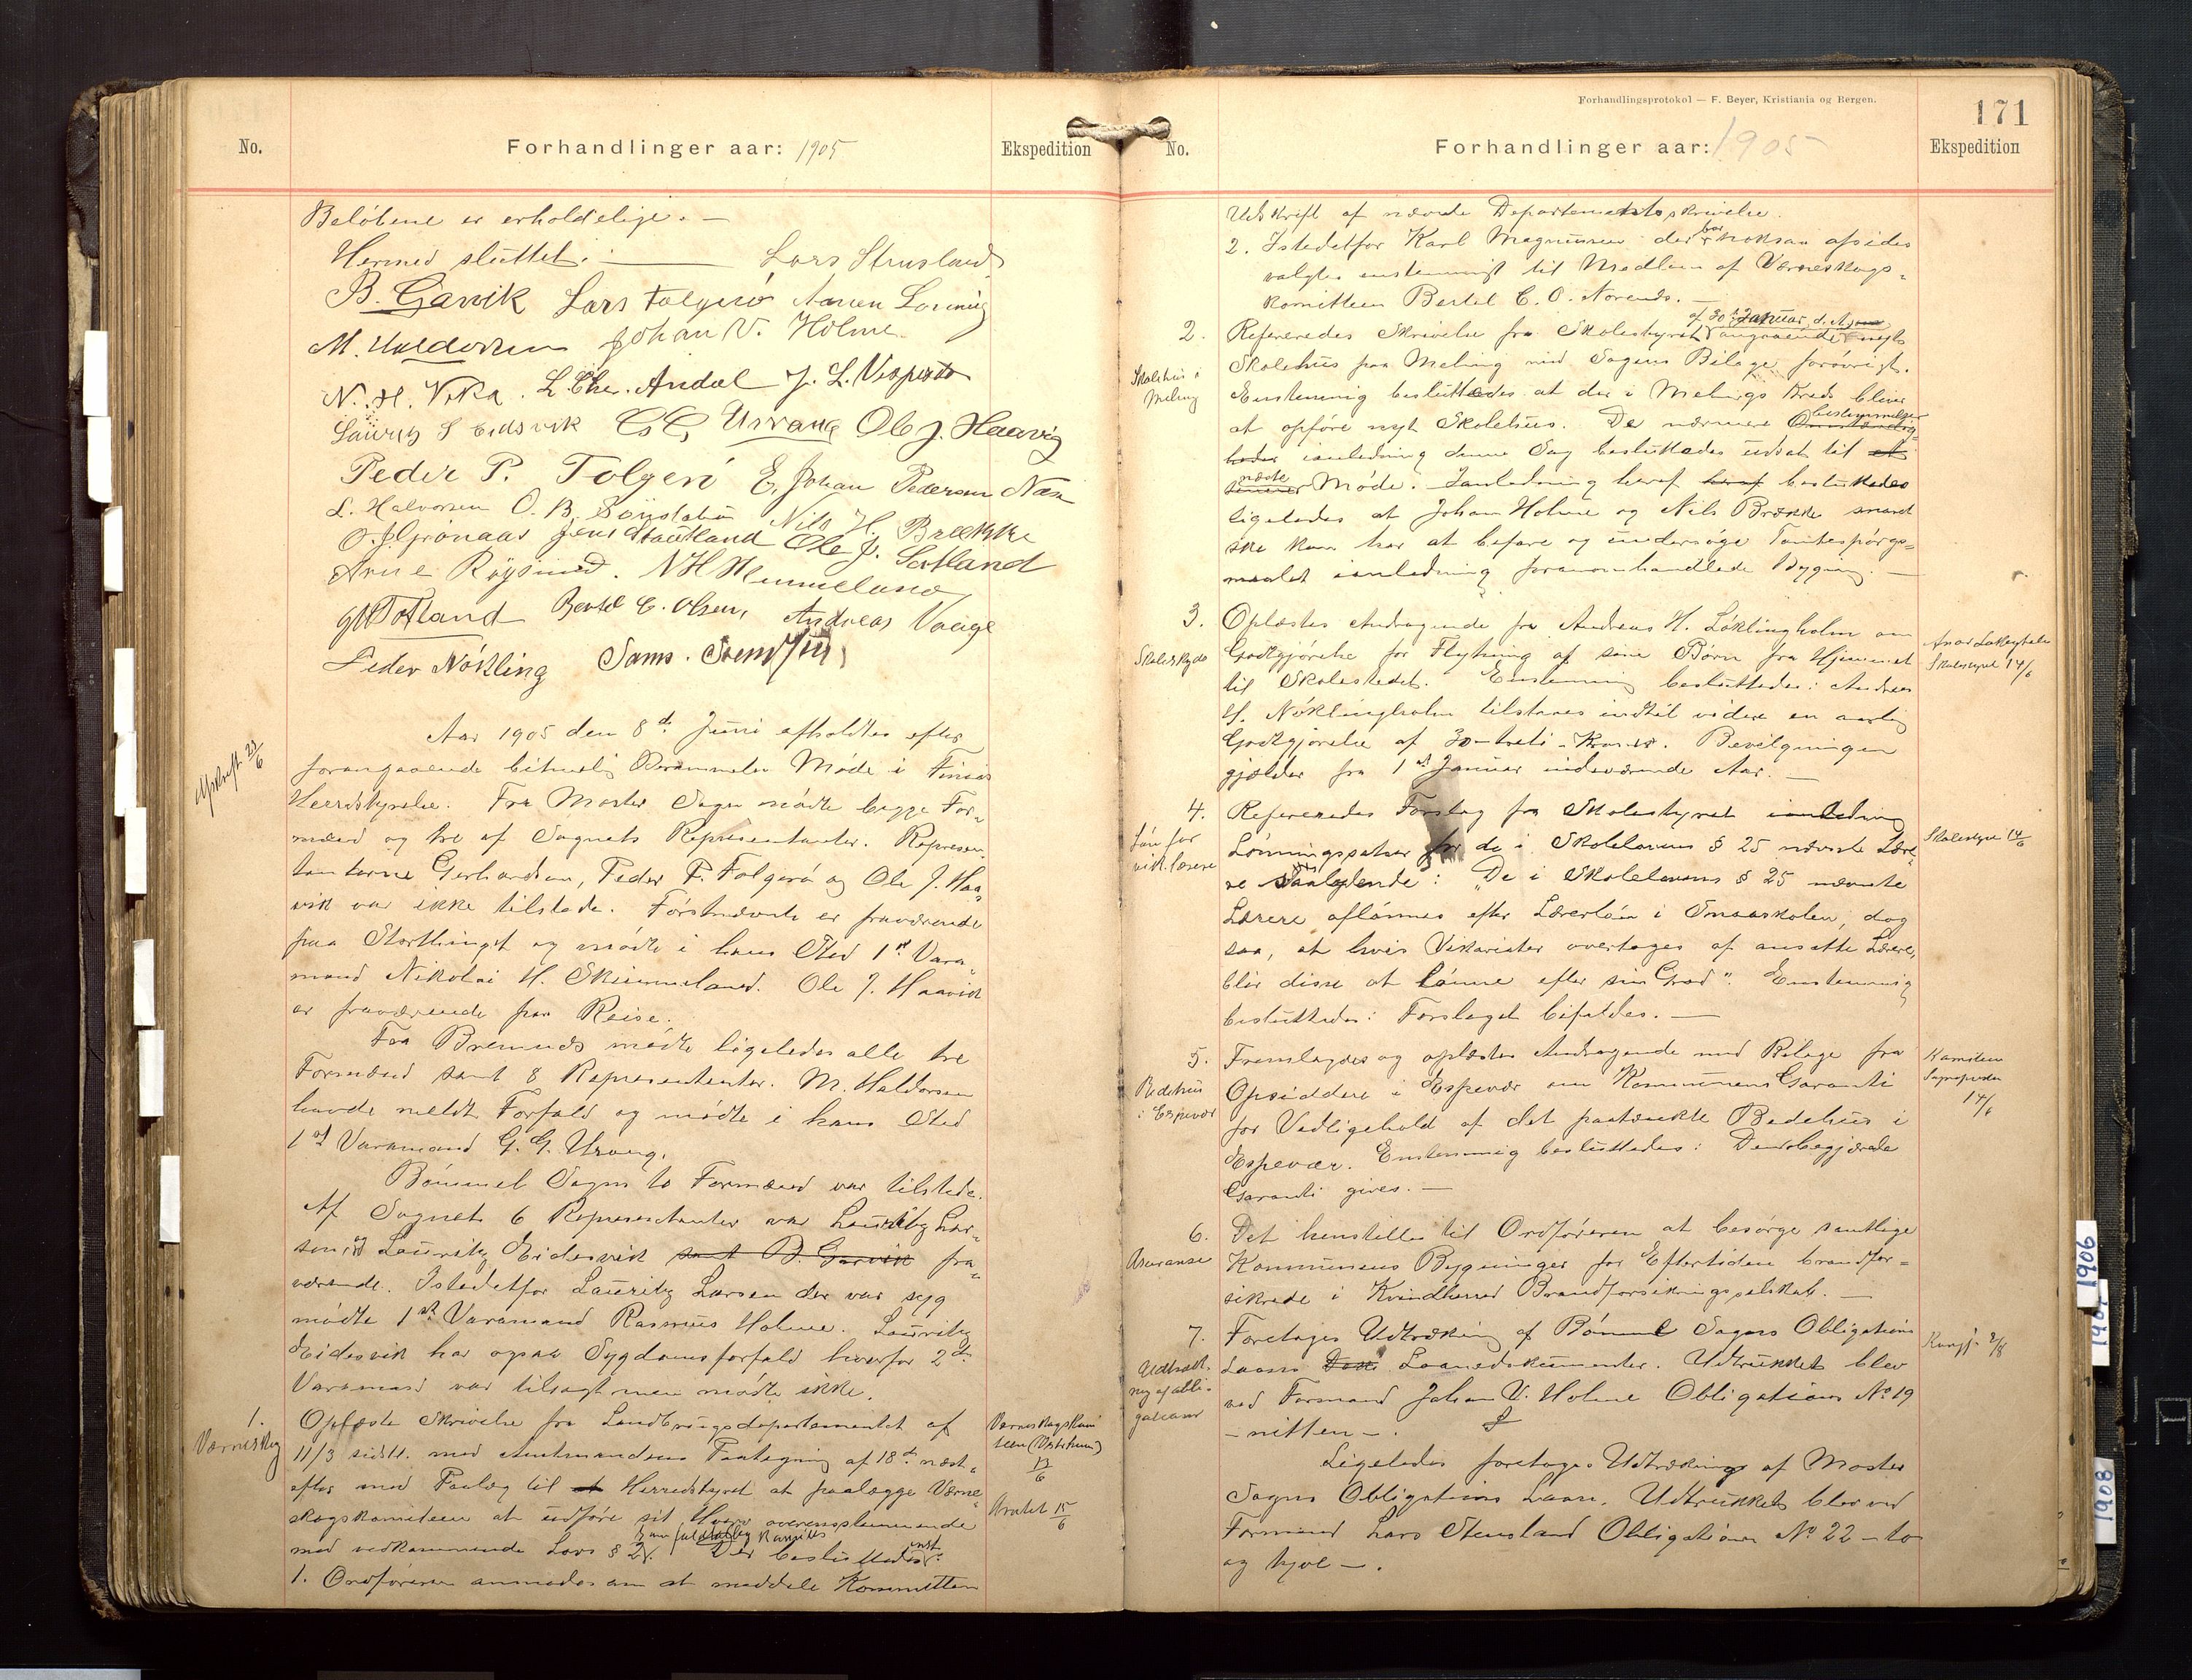 No.
Forhandlinger aar: 1905
Ekspedition
Beløbene er erholdelige. —
Hermed sluttet. — Lars Stensland
B. Gaavik Lars Folgerø
M. Haldorsen Johan V. Holme
N. H. Vika. L. Chr. Andal J. L. Vespestad
Lauritz S Eidsvik G. G. Urvang Ole J. Haavig
Peder P. Folgerø E. Johan Pedersen Næs
L. Halvorsen O. B. Sønstabø Nils H. Brække
O. J. Grønaas Jens Stautland Ole J. Sætland
Arne Røysund. N H Skimmeland
Bertel C. Olsen, Andreas Vaage
Peder Nøkling Sams. Svendsen
Afskrift 23/6
Aar 1905 den 8de Juni afholdtes efter
forangaaende lovlig Berammelse Møde i Finaas
Herredstyrelse. Fra Moster Sogn mødte begge For-
mænd og tre af Sognets Repræsentanter. Repræsen-
tanterne Gerhardsen, Peder P. Folgerø og Ole J. Haa-
vik var ikke tilstede. Førstnævnte er fraværende
paa Storthinget og mødte i hans Sted 1st Vara-
mand Nikolai H. Skimmeland. Ole J. Haavik
er fraværende paa Reise.
Fra Bremnes mødte ligeledes alle tre
Formænd samt 8 Repræsentanter. M. Haldorsen
havde meldt Forfald og mødte i hans Sted
1st Varamand G. G. Urvang.
Bømmel Sogns to Formænd var tilstede.
Af Sognets 6 Repræsentanter var Lauritz Lar-
sen og Lauritz Eidesvik samt B. Gaavik fra-
værende. Istedetfor Lauritz Larsen der var syg
mødte 1st Varamand Rasmus Holme. Lauritz
Eidesvik har ogsaa Sygdomsforfald hvorfor 2de
Varamand var tilsagt men mødte ikke.
1.
Værneskog
Oplæstes Skrivelse fra Landbrugsdepartementet af
11/3 sidstl. med Amtmandens Paategning af 18de næst-
efter med Paalæg til at Herredstyret at paalægge Værne-
skogskomiteen at udføre sit Hverv overensstemmende
med vedkommende Lovs § 2. Der besluttedes enst.:
1. Ordføreren anmodes om at meddele Kommitteen
Værneskogskomi
teen
13/6
Amtet 15/6
Forhandlingsprotokol — F. Beyer, Kristiania og Bergen.
171
No.
Forhandlinger aar: 1905
Ekspedition
Udskrift af nævnte Departementsskrivelse.
2. Istedetfor Karl Magnussen der bor noksaa afsides
valgtes enstemmigt til Medlem af Værneskogs-
komitteen Bertel C. O. Notvends. —
2.
Skolehus i
Meling
af 30te Januar d. A.
Refereredes Skrivelse fra Skolestyret angaaende nyt
Skolehus paa Meling med Sagens Bilage forøvrigt.
Enstemmig besluttedes at der i Melings Kreds bliver
at opføre nyt Skolehus. De nærmere bestemmelser
ianledning denne Sag besluttedes udsat til et
næste Møde. Ianledning heraf heraf besluttedes
ligeledes at Johan Holme og Nils Brække snarest
ske kan har at befare og undersøge Tomtespørgs-
maalet ianledning foranomhandlede Bygning. —
3.
Skoleskyds
Oplæstes Andragende fra Andreas H. Løklingholm om
Godtgjørelse for Flytning af sine Børn fra Hjemmet
til Skolestedet. Enstemmig besluttedes: Andreas
H. Nøklingholm tilstaaes indtil videre en aarlig
Godtgjørelse af 30 – treti – Kroner. Bevilgningen
gjælder fra 1st Januar indeværende Aar. —
Skolestyret 14/6
4.
Løn for
vik. lærere
Refereredes Forslag fra Skolestyret ianledning
Lønningssatser for de i Skolelovens § 25 nævnte Lære-
re saalydende: "De i Skolelovens § 25 nævnte
Lærere aflønnes efter Lærerløn i Smaaskolen, dog
saa, at hvis Vikariater overtages af ansatte Lærere,
blir disse at lønne efter sin Grad". Enstemmig
besluttedes: Forslaget bifaldes. —
Skolestyre 14/6
5.
Bedehus
i Espevær
Fremlagdes og oplæstes Andragende med Bilage fra
Opsiddere i Espevær om Kommunens Garanti
for Vedligehold af det paatænkte Bedehus i
Espevær. Enstemmig besluttedes: Den begjærede
Garanti gives. —
14/6
6.
Assuranse
Det henstilles til Ordføreren at besørge samtlige
Kommunens Bygninger for Eftertiden brandfor-
sikrede i Kvindherred Brandforsikringsselskab. —
7.
Udtræk-
ning af obli-
gationer
Foretoges Udtrækning af Bømmel Sogns Obligations
Laans Laanedokumenter. Udtrukket blev
ved Formand Johan V. Holme Obligation No 19
– nitten –.
Ligeledes foretoges Udtrækning af Moster
Sogns Obligations Laan. Udtrukket blev ved
Formand Lars Stensland Obligation No 22 – to
og tyve –.
1906
1908